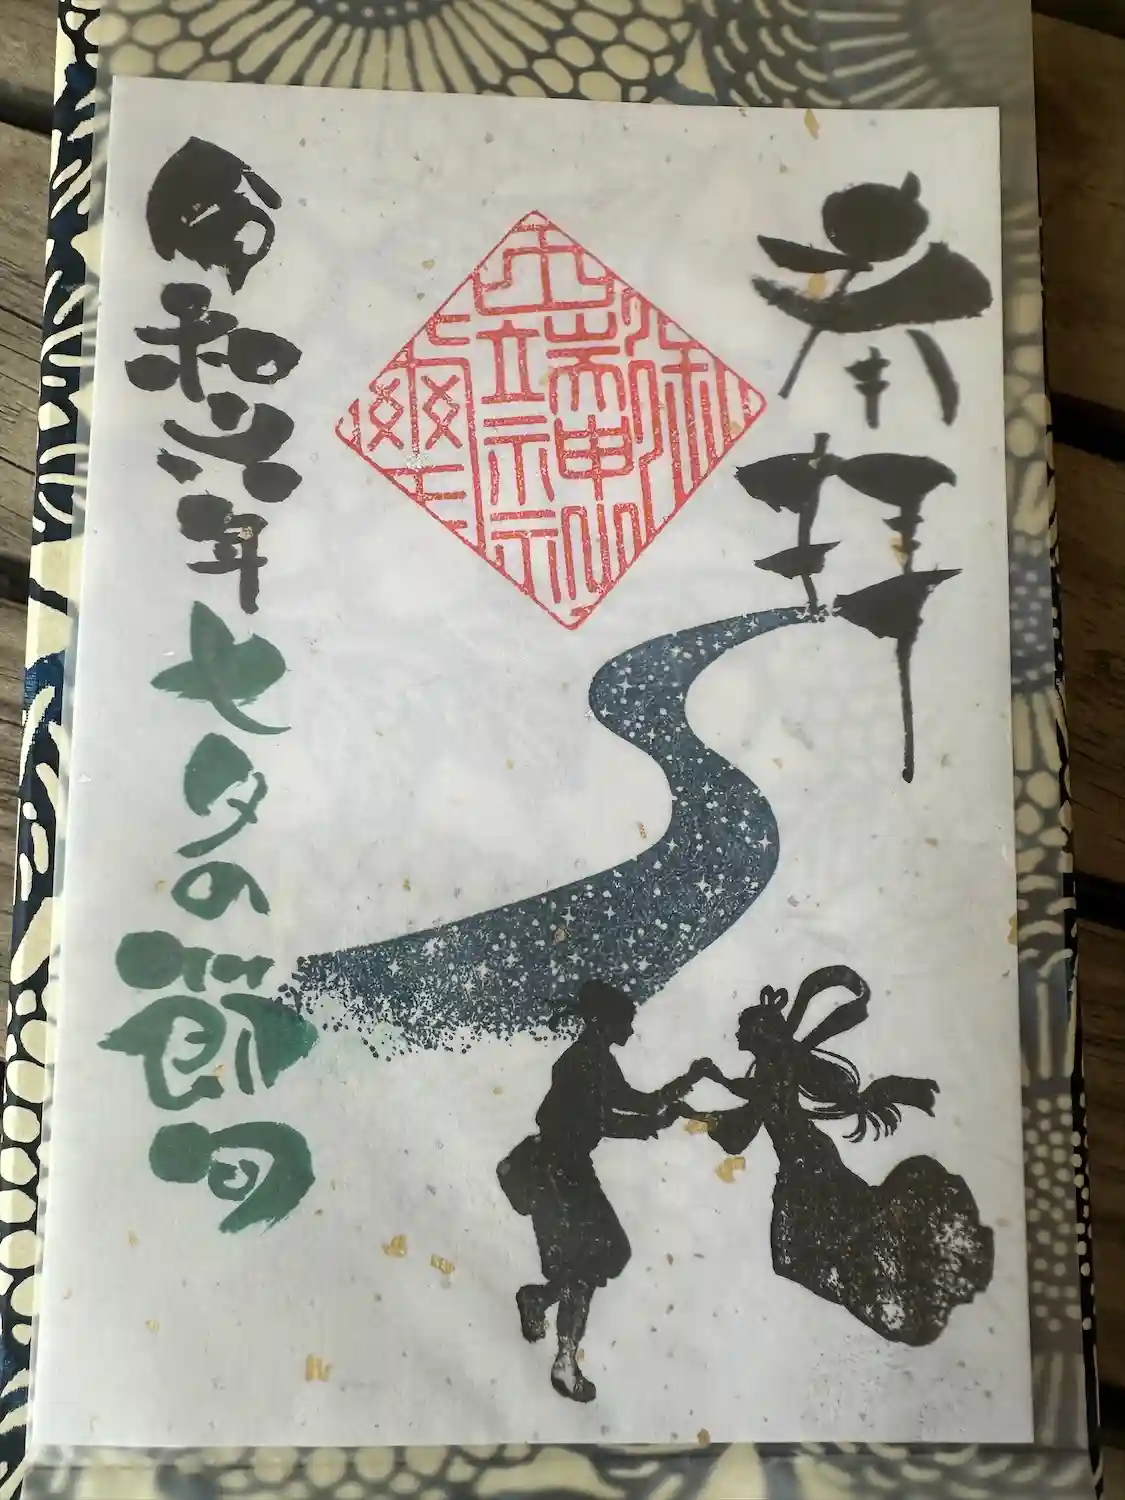 奉拝
令和六年七夕の節句